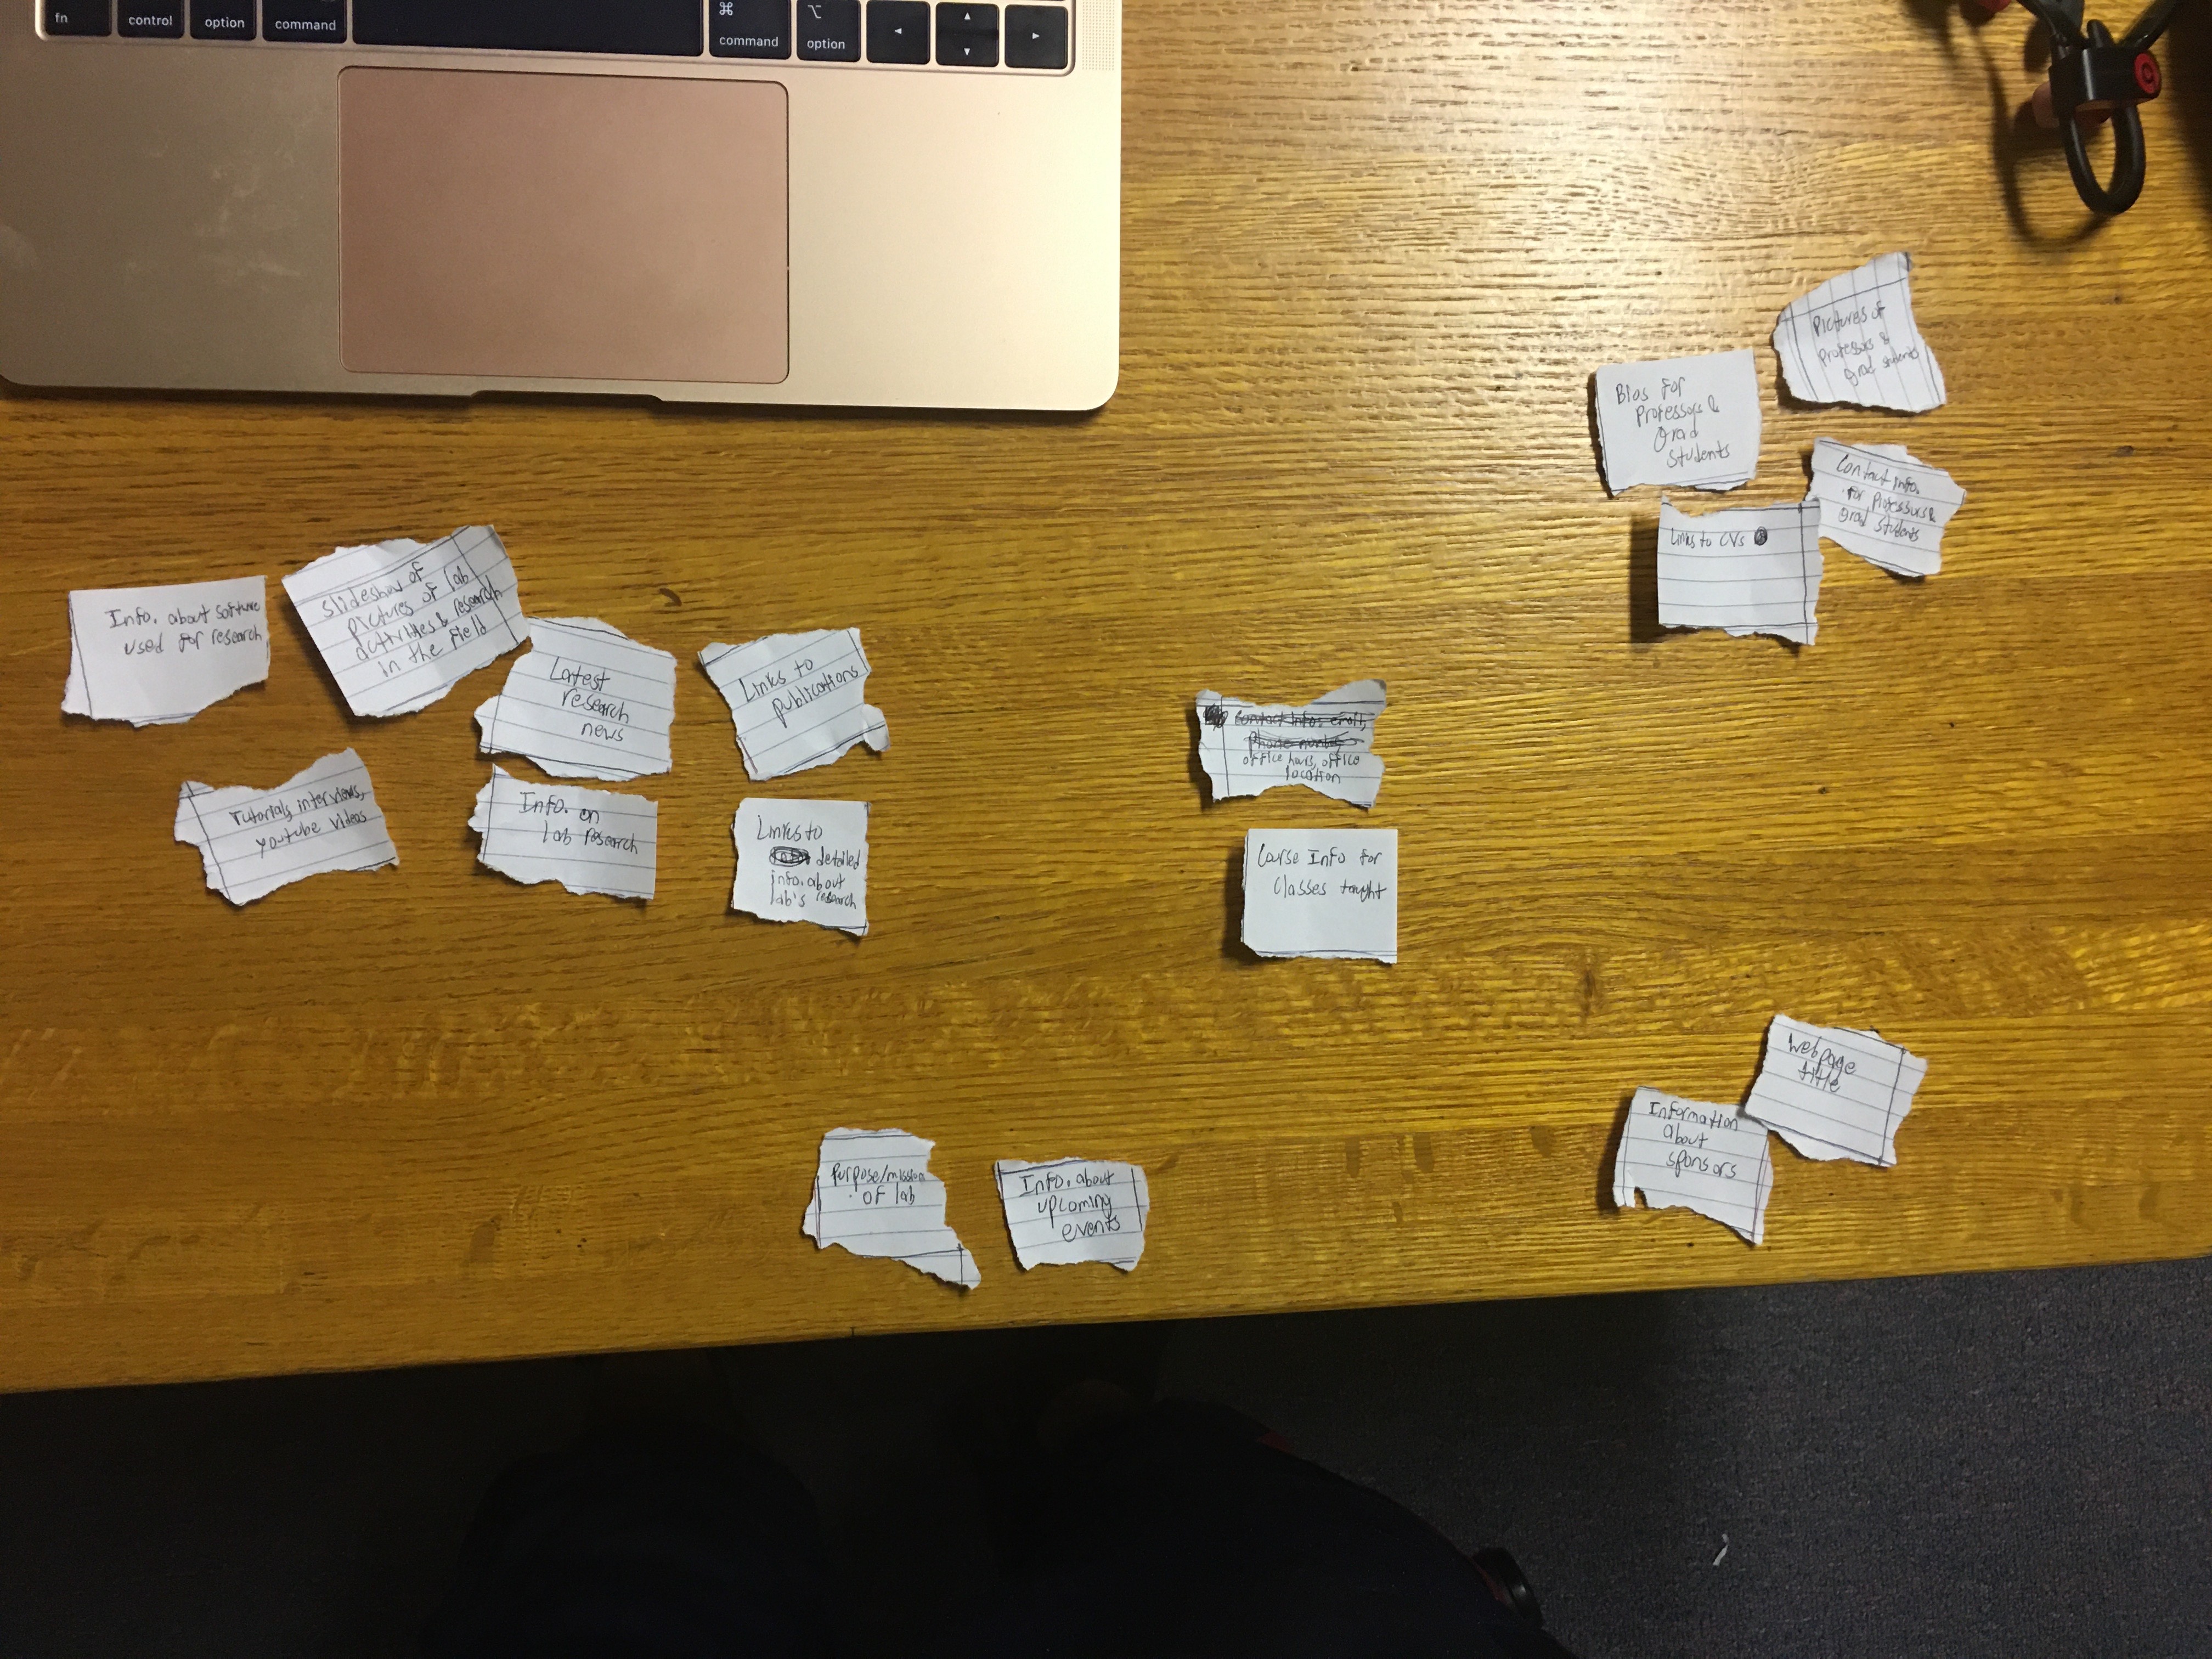 fn
control
option
command
⌘
command
⌥
option
Pictures of
Professors &
grad students
Bios for
Professors &
Grad
Students
Contact info.
for Professors &
grad students
Links to CVs
Info. about software
used for research
Slideshow of
pictures of lab
activities & research
in the field
Latest
research
news
Links to
publications
Tutorials, interviews,
youtube videos
Info. on
lab research
Links to
detailed
info. about
lab's research
Contact info: email,
Phone number,
office hours, office
location
Course Info for
Classes taught
Purpose/mission
of lab
Info. about
upcoming
events
Webpage
title
Information
about
sponsors